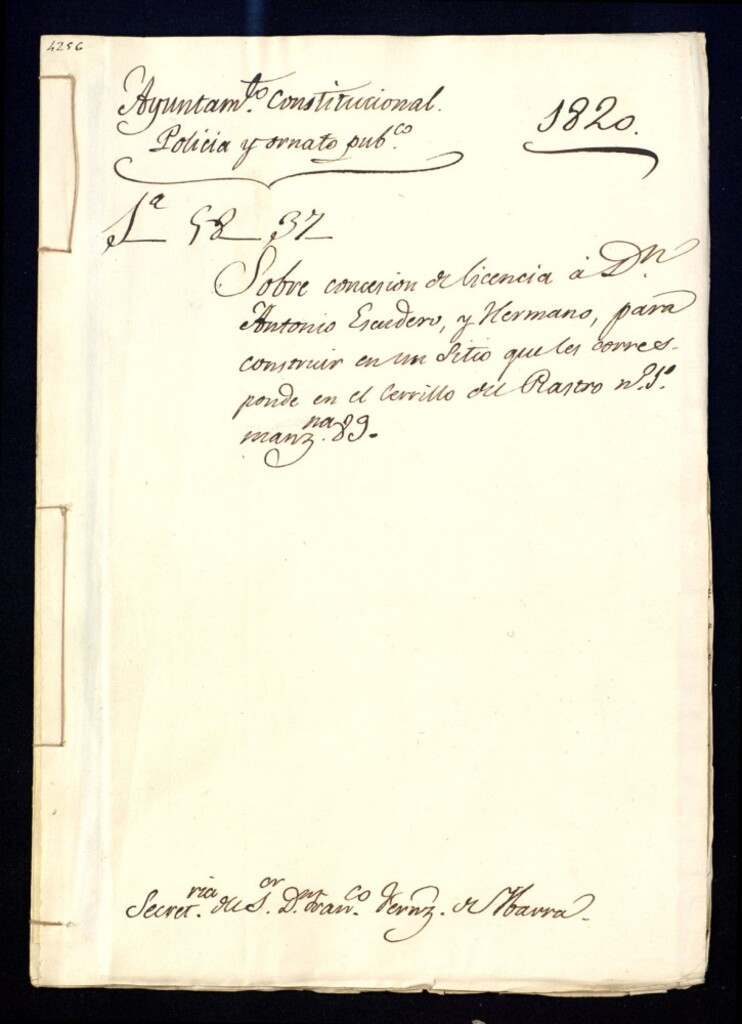 4256
Ayuntam.to Constitucional.
Policia y ornato pub.co
1820.
1a 58 37
Sobre concesion de licencia á Dn
Antonio Escudero, y Hermano, para
construir en un Sitio que les corres-
ponde en el Cerrillo del Rastro n.o 5.o
manz.na 89.
Secret.ria del S.or D.n Fran.co Fernz. de Ybarra.